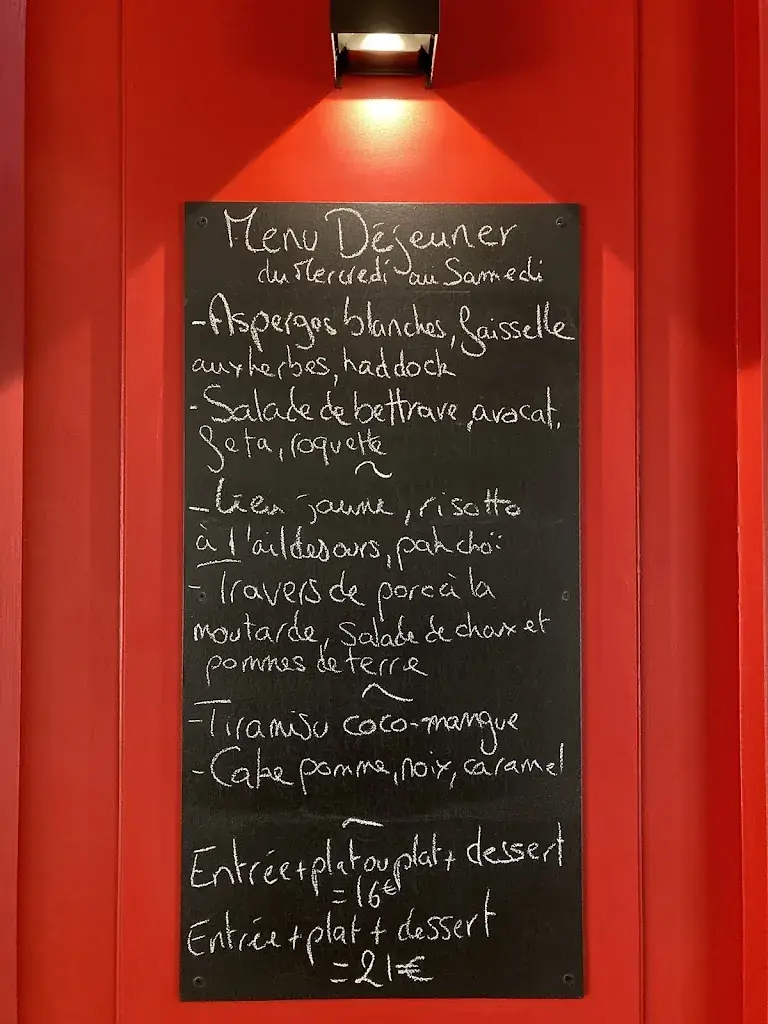 Menu Déjeuner
du Mercredi au Samedi
- Asperges blanches, faisselle
aux herbes, haddock
- Salade de bettrave, avocat,
feta, roquette
~
- Lieu jaune, risotto
à l'ail des ours, pak choï
- Travers de porc à la
moutarde, Salade de choux et
pommes de terre
~
- Tiramisu coco-mangue
- Cake pomme, noix, caramel
~
Entrée + plat ou plat + dessert
= 16€
Entrée + plat + dessert
= 21€